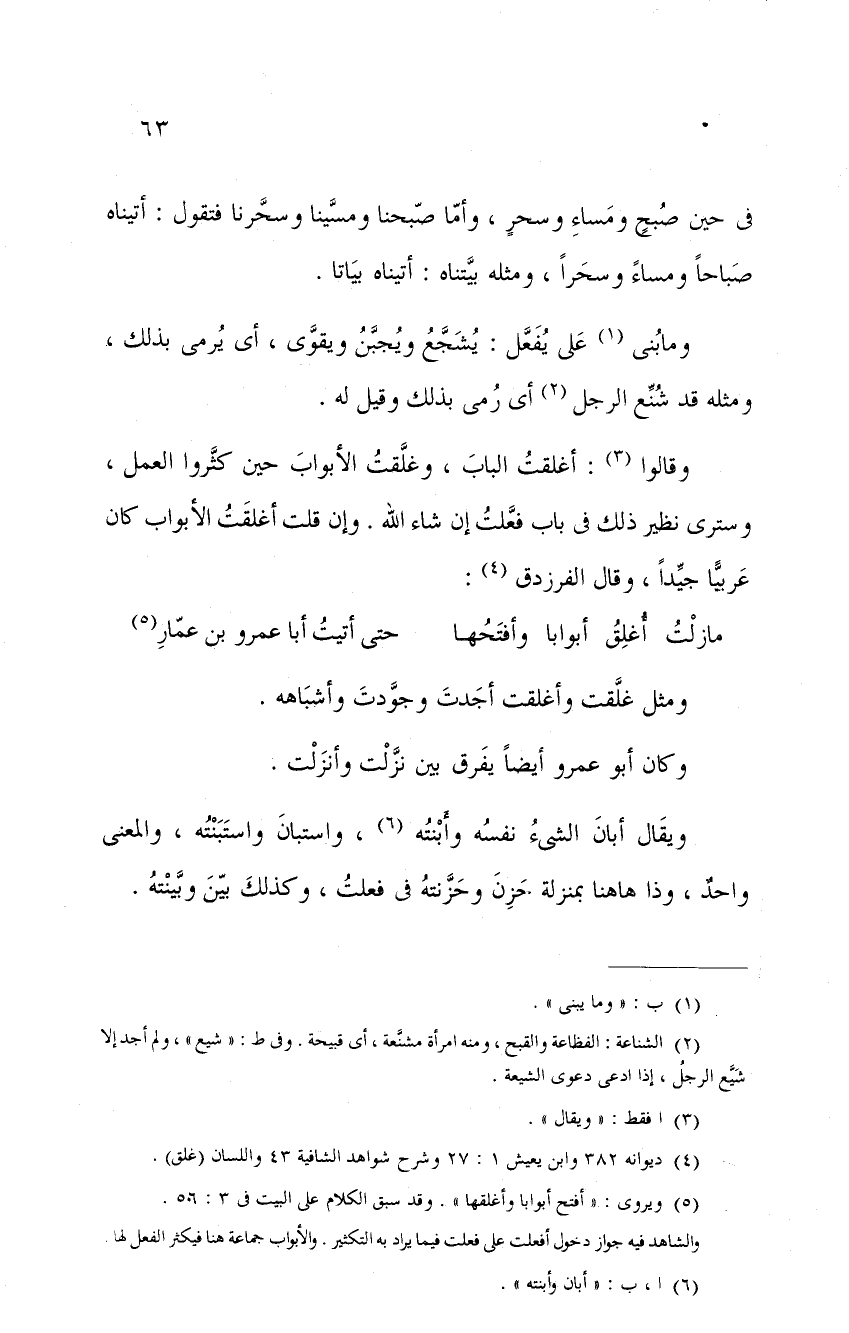 ٦٣
فى حين صُبحٍ ومَساءِ وسحرٍ ، وأمّا صّبحنا ومسَّينا وسحَّرنا فتقول : أتيناه
صَباحاً ومساءً وسحَراً ، ومثله بيَّتناه : أتيناه بيَاتا .
ومابُنى (١) عَلى يُفَعَّل : يُشَجَّعُ ويُجبَّنُ ويقوَّى ، أى يُرمى بذلك ،
ومثله قد شُنِّع الرجل (٢) أى رُمى بذلك وقيل له .
وقالوا (٣) : أغلقتُ البابَ ، وغلَّقتُ الأبوابَ حين كثَّروا العمل ،
وسترى نظير ذلك فى باب فعَّلتُ إن شاء الله . وإن قلت أغلقَتُ الأبواب كان
عَربيًّا جيِّداً ، وقال الفرزدق (٤) :
مازلْتُ أُغلِقُ أبوابا وأفتَحُهـا حتى أتيتُ أبا عمرو بن عمّارِ(٥)
ومثل غلَّقت وأغلقت أجَدتَ وجوَّدتَ وأشبَاهه .
وكان أبو عمرو أيضاً يفَرق بين نزَّلْت وأنزَلْت .
ويقَال أبانَ الشىءُ نفسُه وأَبْنتُه (٦) ، واستبانَ واستَبَنْتُه ، والمعنى
واحدٌ ، وذا هاهنا بمنزلة حَزِنَ وحَزَّنتهُ فى فعلتُ ، وكذلكَ بيّنَ وبيَّنْتهُ .
(١) ب : « وما يبنى » .
(٢) الشناعة : الفظاعة والقبح ، ومنه امرأة مشنَّعة ، أى قبيحة . وفى ط : « شيع » ، ولم أجد إلا
شَيَّع الرجلُ ، إذا ادعى دعوى الشيعة .
(٣) ا فقط : « ويقال » .
(٤) ديوانه ٣٨٢ وابن يعيش ١ : ٢٧ وشرح شواهد الشافية ٤٣ واللسان (غلق) .
(٥) ويروى : « أفتح أبوابا وأغلقها » . وقد سبق الكلام على البيت فى ٣ : ٥٠٦ .
والشاهد فيه جواز دخول أفعلت على فعلت فيما يراد به التكثير . والأبواب جماعة هنا فيكثر الفعل لها .
(٦) ا ، ب : « أبان وأبنته » .